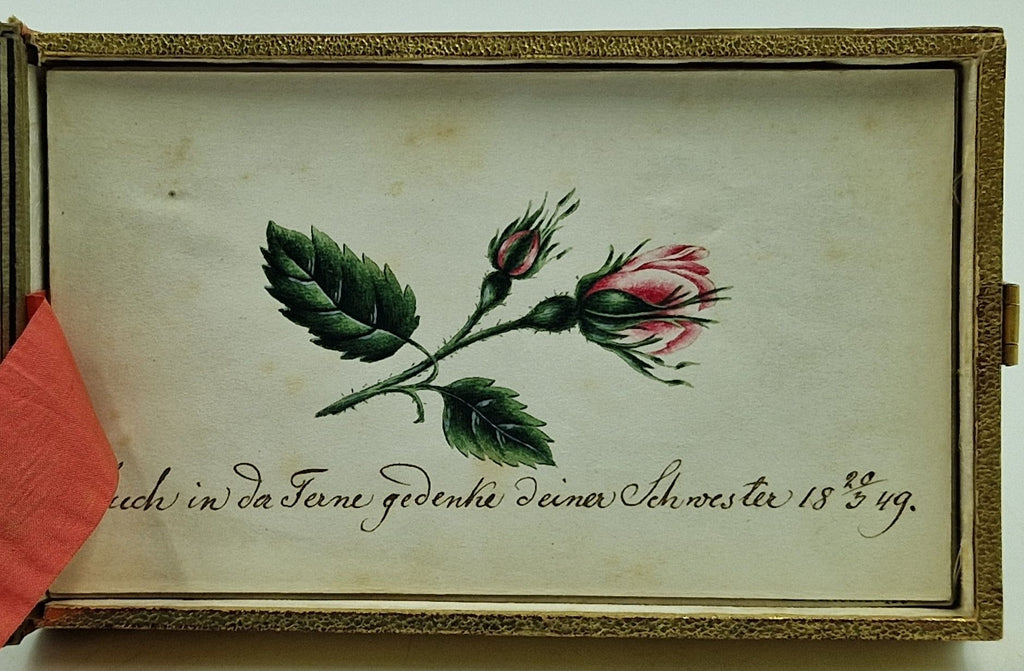 Auch in der Ferne gedenke deiner Schwester 18 20/3 49.